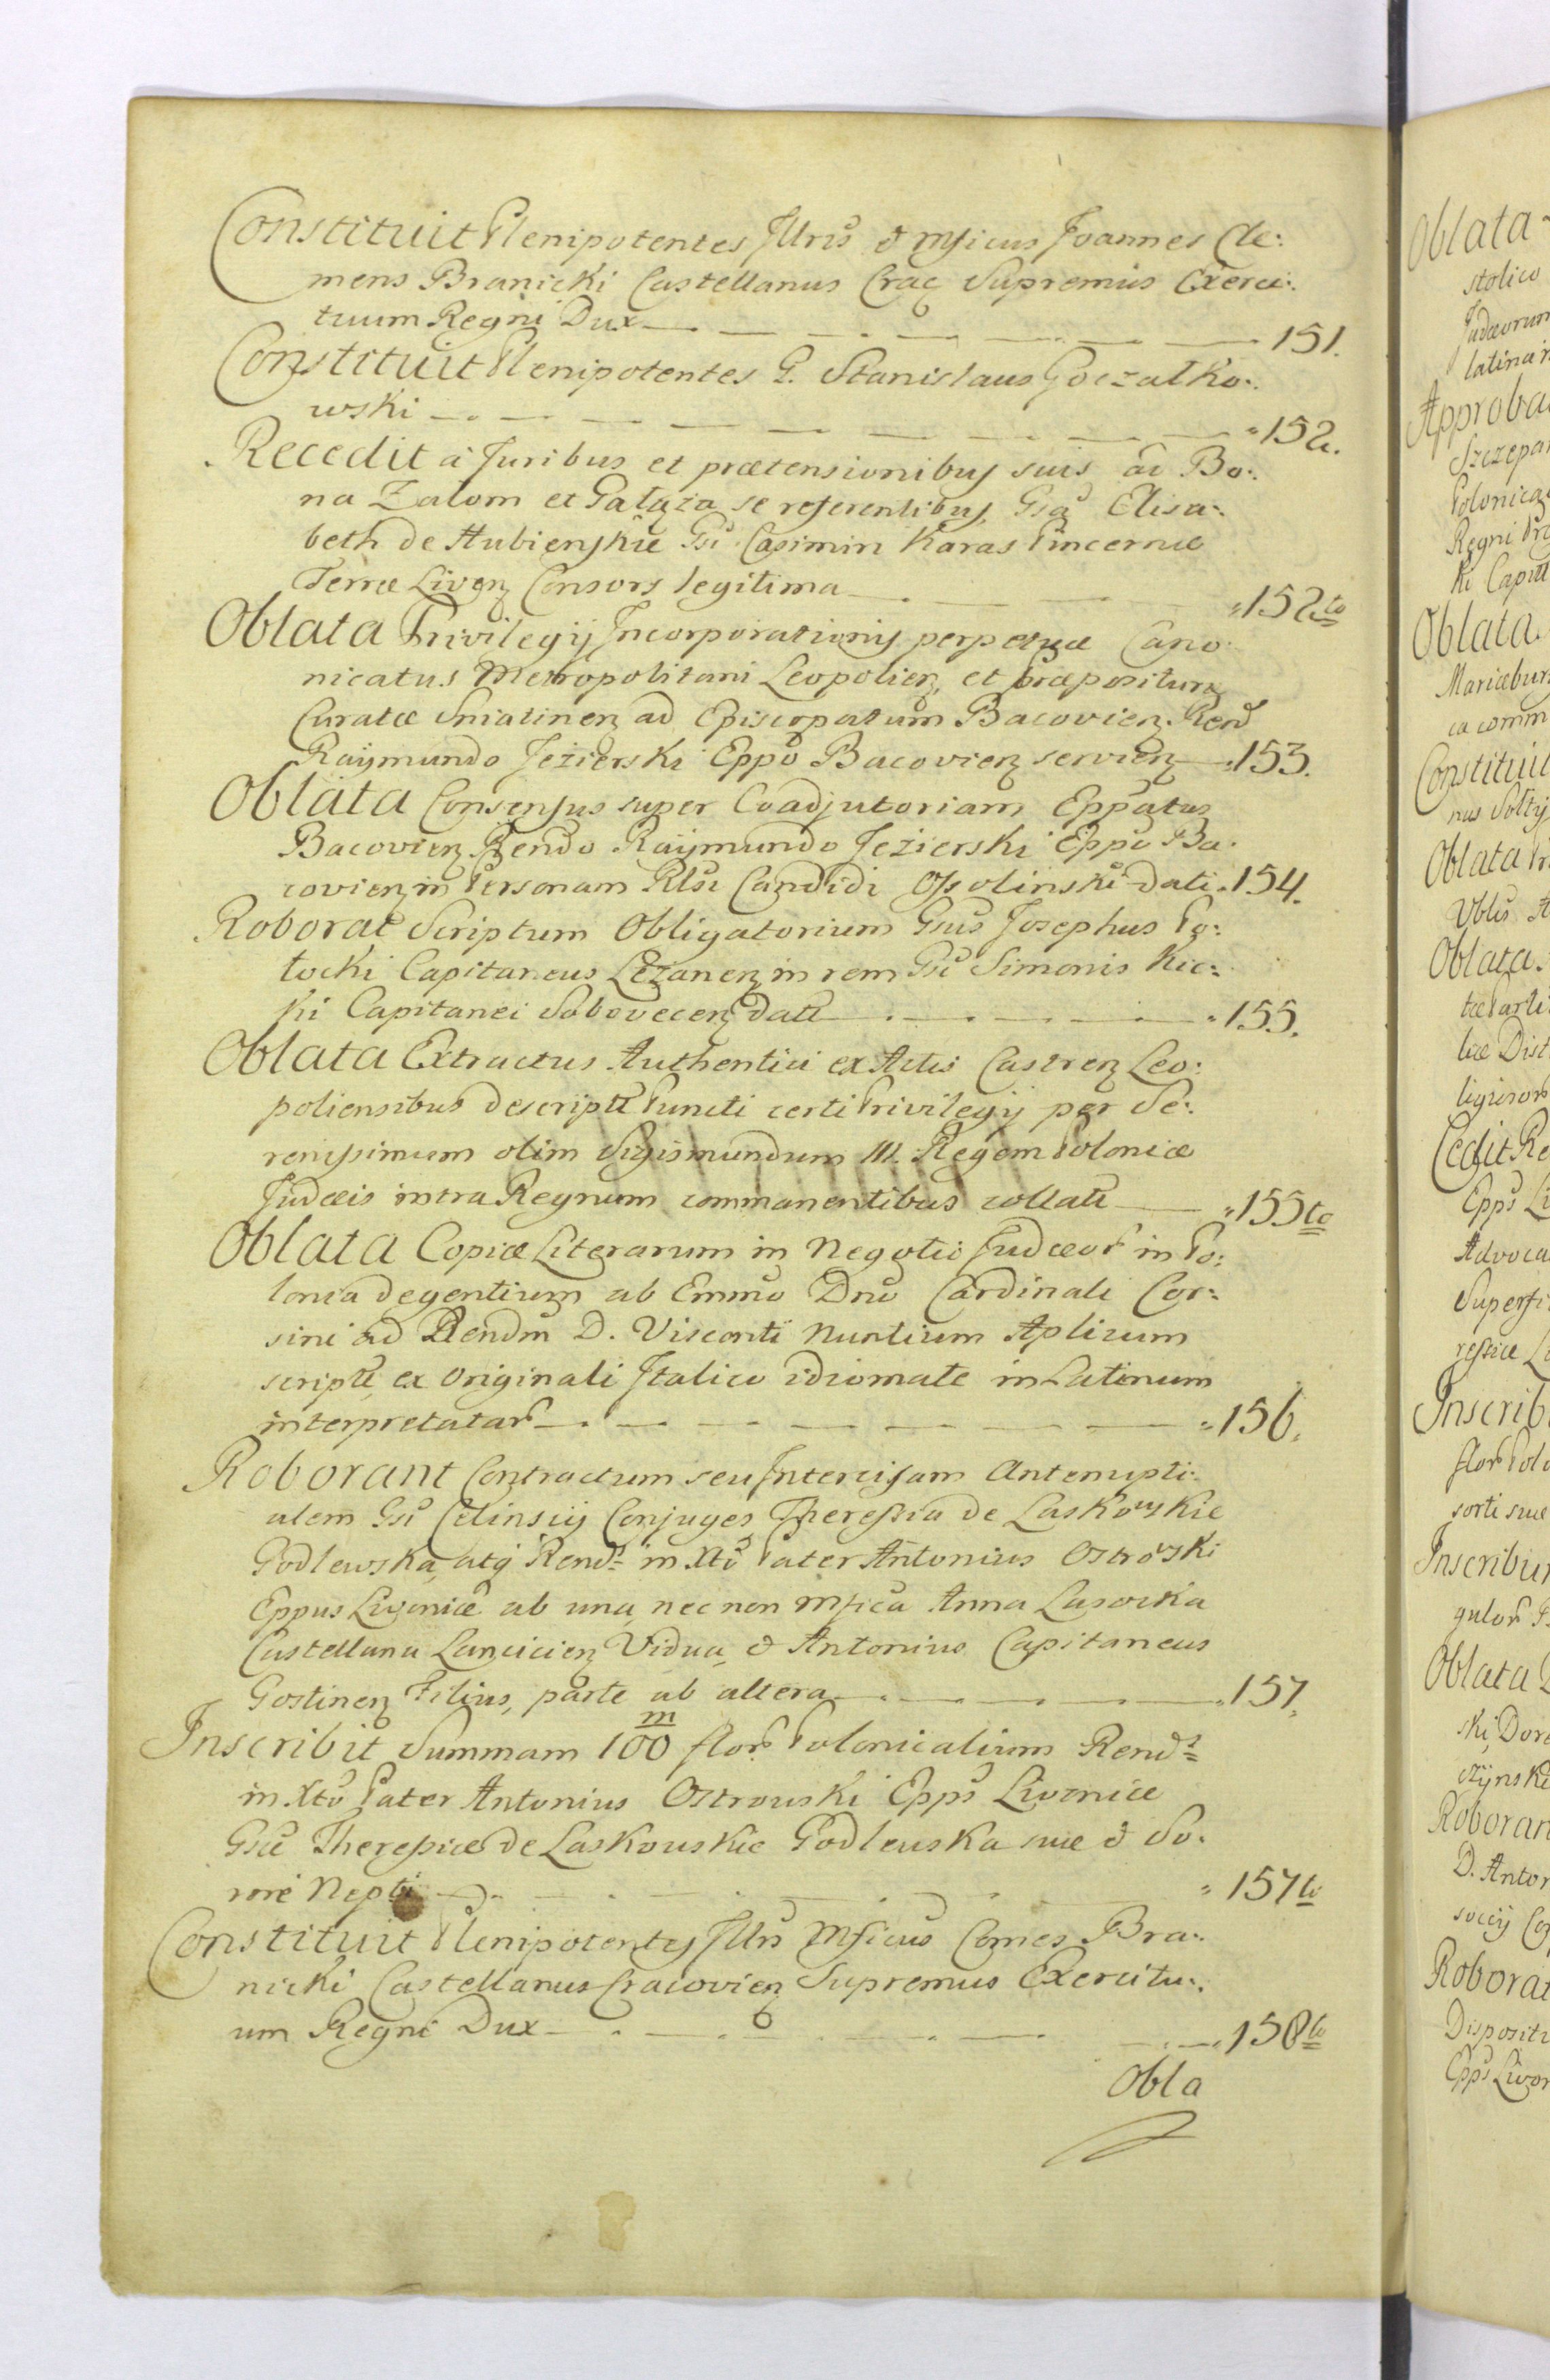 Constituit Plenipotentes Jllris & Mficus Joannes Cle:
mens Branicki Castellanus Crac Supremus Exerci:
tuum Regni Dux 151.
Constituit Plenipotentes G. Stanislaus Goczałko:
wski 152.
Recedit á Juribus et prætensionibus suis ad Bo:
na Zalom et Gałąza se referentibus, Gsa Elisa:
beth de Hubienskie Gsi Casimiri Karas Pincernæ
Terræ Liven Consors legitima 152to
Oblata Privilegij Incorporationis perpetuæ Cano
nicatus Metropolitani Leopolien, et Præpositura
Curatæ Sniatinen ad Episcopatum Bacovien Rend
Raymundo Jezierski Eppo Bacovien servien 153.
Oblata Consensus super Coadjutoriam Eppatus
Bacovien Rendo Raymundo Jezierski Eppo Ba
covien in Personam Rlsi Candidi Ossolinski dati 154.
Roborat Scriptum Obligatorium Gsus Josephus Po:
tocki Capitaneus Leżanen in rem Gsi Simonis Kic:
ki Capitanei Sobovecen dati 155.
Oblata Extractus Authentici ex Actis Castren Leo:
poliensibus descripti Puncti certi Privilegij per Se:
renissimum olim Sigismundum III. Regem Poloniæ
Judæis intra Regnum commanentibus collati 155to
Oblata Copiæ Literarum in Negotio Judæor in Po:
lonia degentium ab Emmo Dno Cardinali Cor:
sini ad Rendm D. Visconti Nuntium Aplicum
scripti ex Originali Italico idiomate in Latinum
interpretatar 156.
Roborant Contractum seu Intercisam Antenupti:
alem Gsi Celinscij Conjuges, Theressia de Laskowskie
Godlewska, atq Rends in Xto Pater Antonius Ostrowski
Eppus Livoniæ ab una, nec non Mfica Anna Lasocka
Castellana Lancicien Vidua, & Antonius Capitaneus
Gostinen Filius, parte ab altera 157.
Inscribit Summam 100 m flor Polonicalium Rends
in Xto Pater Antonius Ostrowski Epps Livoniæ
Gsæ Theressiæ de Laskowskie Godlewska suæ & So:
rore Nepti 157to
Constituit Plenipotentes Jllris Mficus Comes Bra:
nicki Castellanus Cracovien Supremus Exercitu:
um Regni Dux 158to
Obla
Oblata
stolico
Judæorum
latina
Approba
Szczepa
Polonica
Regni
ki Capit
Oblata
Mariæbur
ca comm
Constitui
nus Sołty
Oblata
Oblata.
liæ Dist
Cedit Re
Epps Li
Advoca
Inscrib
sorti suæ
Inscribu
gulor
Oblata
ski, Dor
Roboran
D. Anton
Roborat
Dispositi
Epps Livon